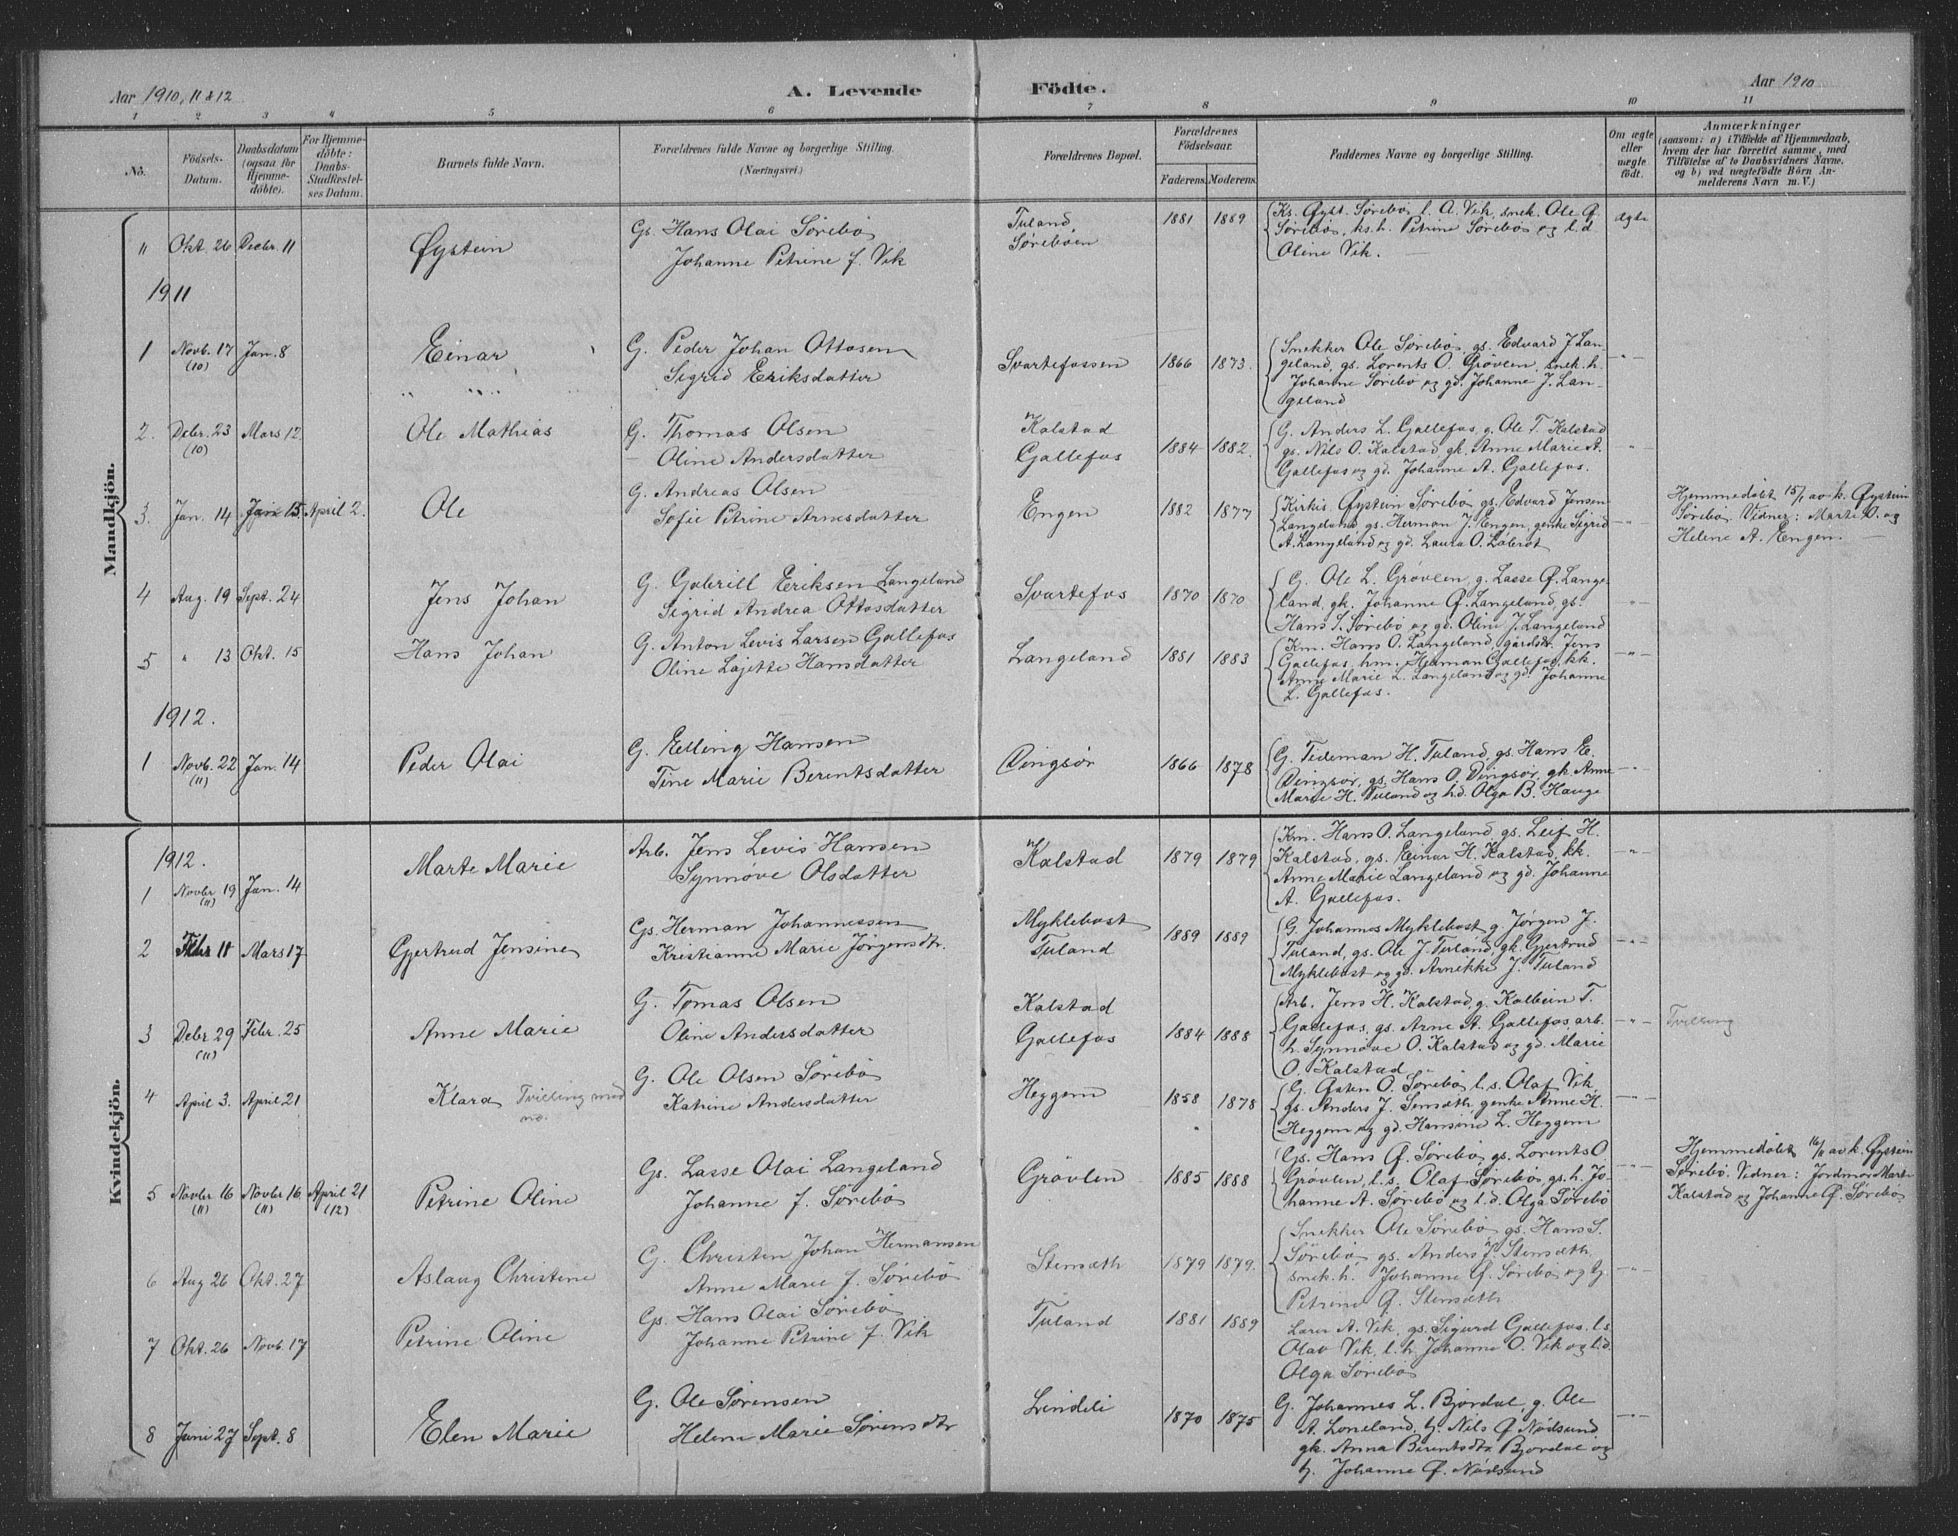 Aar 1910, 11 & 12 A. Levende Födte. Aar 1910
1 2 3 4 5 6 7 8 9 10 11
No.
Födsels-Datum.
Daabsdatum (ogsaa for Hjemme-döbte).
For Hjemme-döbte: Daabs-Stadfæstelses Datum.
Barnets fulde Navn.
Forældrenes fulde Navne og borgerlige Stilling. (Næringsvei.)
Forældrenes Bopæl.
Forældrenes Födselsaar.
Faderens. Moderens.
Faddernes Navne og borgerlige Stilling.
Om ægte eller uægte födt.
Anmærkninger
(saasom: a) i Tilfælde af Hjemmedaab, hvem der har forrettet samme, med Tilföielse af to Daabsvidners Navne. og b) ved uægtefödte Börn Anmelderens Navn m. V.)
Mandkjön.
11 Okt. 26 Decbr. 11 Øystein
Gs. Hans Olai Sørebø
Johanne Petrine f. Vik
Tuland,
Sørebøen
1881 1889
Ks. Øyst. Sørebø, l. A. Vik, snek. Ole Ø.
Sørebø, ks.h. Petrine Sørebø og l.d.
Oline Vik.
ægte
1911
1 Novb. 17 (10) Jan. 8 Einar
G. Peder Johan Ottosen
Sigrid Eriksdatter
Svartefossen 1866 1873.
Snekker Ole Sørebø, gs. Edvard J Lan-
geland, gs. Lorents O. Grøvlen, snek. h.
Johanne Sørebø og gd. Johanne J. Lan-
geland
2. Debr. 23 (10) Mars 12 Ole Mathias
G. Thomas Olsen
Oline Andersdatter
Kalstad
Gallefos
1884 1882.
G. Anders L. Gallefos, g. Ole T. Kalstad
gs. Nils O. Kalstad, gk. Anne Marie A.
Gallefos og gd. Johanne A. Gallefos.
3. Jan. 14 Jan 15 April 2. Ole
G. Andreas Olsen
Sofie Petrine Arnesdatter
Engen 1882 1877
Kirkis. Øystein Sørebø, gs. Edvard Jensen
Langeland, gs. Herman J. Engen, genke Sigrid
A. Langeland og gd. Laura O. Løbrot
Hjemmedøbt 15/1 av k. Øystein
Sørebø. Vidner: Marte O. og
Helene A. Engen.
4 Aug. 19 Sept. 24 Jens Johan
G. Gabriell Eriksen Langeland
Sigrid Andrea Ottosdatter
Svartefos 1870 1870
G. Ole L. Grøvlen, g. Lasse Ø. Lange-
land, gk. Johanne Ø. Langeland, gs.
Hans S. Sørebø og gd. Oline J. Langeland
5 " 13 Okt. 15 Hans Johan
G. Anton Levis Larsen Gallefos
Oline Lajette Hansdatter
Langeland 1881 1883
Km. Hans O. Langeland, gårdbr. Jens
Gallefos, hm. Herman Gallefos, kk.
Anne Marie L. Langeland og gd. Johanne
L. Gallefos.
1912.
1 Novb. 22 (11) Jan. 14 Peder Olai
G. Elling Hansen
Tine Marie Berentsdatter
Dingsør 1866 1878
G. Tideman H. Tuland, gs. Hans E.
Dingsør, gs. Hans O. Dingsør, gk. Anne
Marie H. Tuland og hd. Olga B. Hauge
Kvindekjön.
1912.
1 Novbr 19 (11) Jan. 14 Marte Marie
Arb. Jens Levis Hansen
Synnøve Olsdatter
Kalstad 1879 1879
Km. Hans O. Langeland, gs. Leif H.
Kalstad, gs. Einar H. Kalstad, kk.
Anne Marie Langeland og gd. Johanne
A. Gallefos.
2 Febr 11 Mars 17 Gjertrud Jensine
Gs. Herman Johannessen
Kristianne Marie Jørgensdtr.
Myklebost
Tuland
1889 1889
G. Johannes Myklebost, g. Jørgen J.
Tuland, gs. Ole J. Tuland, gk. Gjertrud
Myklebost og gd. Arnekke J. Tuland
3 Debr 29 (11) Febr. 25 Anne Marie
G. Tomas Olsen
Oline Andersdatter
Kalstad
Gallefos
1884 1888
Arb. Jens H. Kalstad, g. Kolbein T.
Gallefos, gs. Arne A. Gallefos arb.
h. Synnøve O. Kalstad og gd. Marie
O. Kalstad
Tvilling
4 April 3. April 21 Klara Tvilling med no.
G. Ole Olsen Sørebø
Katrine Andersdatter
Heggem 1858 1878
G. Østen O. Sørebø, l.s. Olaf Vik,
gs. Anders J. Stensæth, genke Anne H.
Heggem og gd. Hansine L. Heggem
5 Novbr 16 (11) Novbr 16 (11) April 21 (12) Petrine Oline
Gs. Lasse Olai Langeland
Johanne f. Sørebø
Grøvlen 1885 1888
Gs. Hans Ø. Sørebø, gs. Lorents O
Grøvlen, l.s. Olaf Sørebø, gs. h. Jo-
hanne A. Sørebø og l.d. Olga Sørebø
Hjemmedøbt 16/11 av k. Øystein
Sørebø. Vidner: Jordmor Marte
Kalstad og Johanne Ø. Sørebø
6 Aug 26 Okt. 27 Aslaug Christine
G. Christen Johan Hermansen
Anne Marie f. Sørebø
Stensæth 1879 1879.
Snekker Ole Sørebø, gs. Hans S.
Sørebø, gs. Anders J. Stensæth,
snek. h. Johanne Ø. Sørebø og tj.
Petrine Ø. Stensæth
7 Okt. 26 Novb. 17 Petrine Oline
Gs. Hans Olai Sørebø
Johanne Petrine f. Vik
Tuland 1881 1889
Lærer A. Vik, gs. Sigurd Gallefos, l.s
Olav Vik, l.h. Johanne O. Vik og l.d.
Olga Sørebø
8 Juni 27 Sept. 8 Elen Marie
G. Ole Sørensen
Helene Marie Sørensdtr
Lindeli 1870 1875
G. Johannes L. Bjordal, g. Ole
A. Loneland, tj. Nils Ø Nødsund,
gk. Anna Berentsdtr. Bjordal og
tj. Johanne Ø. Nødsund